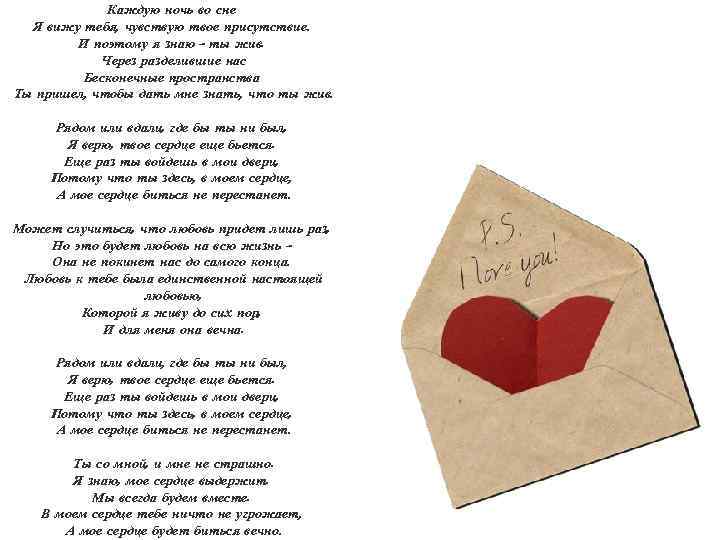 Каждую ночь во сне
Я вижу тебя, чувствую твое присутствие.
И поэтому я знаю - ты жив.
Через разделившие нас
Бесконечные пространства
Ты пришел, чтобы дать мне знать, что ты жив.
Рядом или вдали, где бы ты ни был,
Я верю, твое сердце еще бьется.
Еще раз ты войдешь в мои двери,
Потому что ты здесь, в моем сердце,
А мое сердце биться не перестанет.
Может случиться, что любовь придет лишь раз,
Но это будет любовь на всю жизнь -
Она не покинет нас до самого конца.
Любовь к тебе была единственной настоящей
любовью,
Которой я живу до сих пор,
И для меня она вечна.
Рядом или вдали, где бы ты ни был,
Я верю, твое сердце еще бьется.
Еще раз ты войдешь в мои двери,
Потому что ты здесь, в моем сердце,
А мое сердце биться не перестанет.
Ты со мной, и мне не страшно.
Я знаю, мое сердце выдержит.
Мы всегда будем вместе.
В моем сердце тебе ничто не угрожает,
А мое сердце будет биться вечно.
P.S.
I love you!